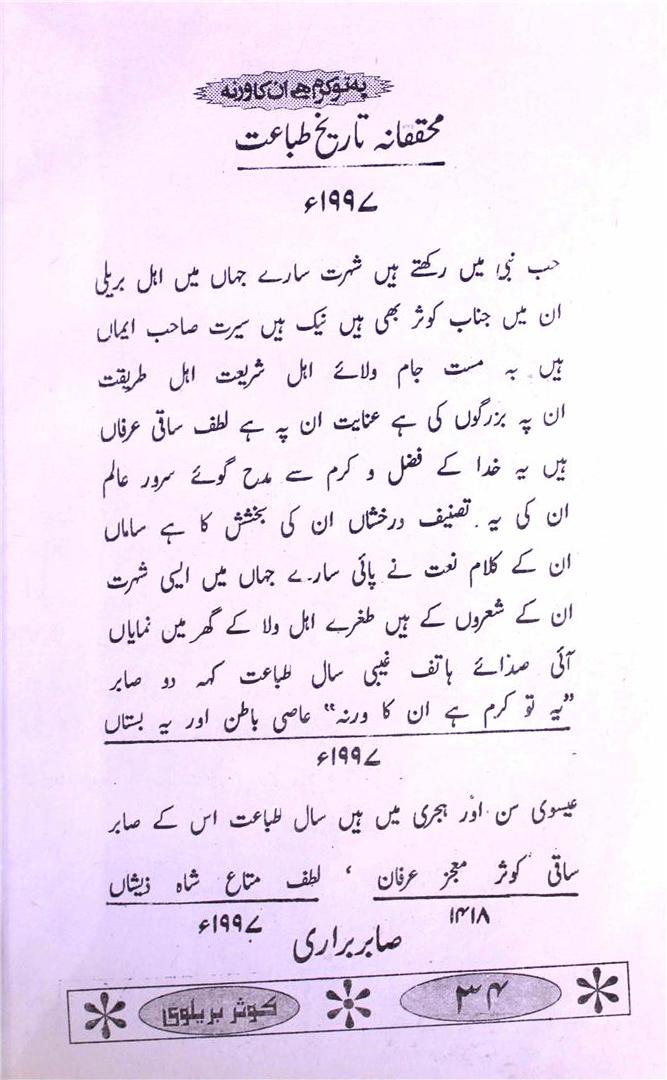 یہ تو کرم ہے ان کا ورنہ
محققانہ تاریخ طباعت
۱۹۹۷ء
حب نبیؐ میں رکھتے ہیں شہرت سارے جہاں میں اہل بریلی
ان میں جناب کوثر بھی ہیں نیک ہیں سیرت صاحب ایماں
ہیں یہ مست جام ولائے اہل شریعت اہل طریقت
ان پہ بزرگوں کی ہے عنایت ان پہ ہے لطف ساقی عرفاں
ہیں یہ خدا کے فضل و کرم سے مدح گوئے سرور عالم
ان کی یہ تصنیف درخشاں ان کی بخشش کا ہے ساماں
ان کے کلام نعت نے پائی سارے جہاں میں ایسی شہرت
ان کے شعروں کے ہیں طغرے اہل ولا کے گھر میں نمایاں
آئی صدائے ہاتف غیبی سال طباعت کہہ دو صابر
”یہ تو کرم ہے ان کا ورنہ“ عاصی باطن اور یہ بستاں
۱۹۹۷ء
عیسوی سن اور ہجری میں ہیں سال طباعت اس کے صابر
ساقی کوثر معجز عرفان ، لطف متاع شاہ ذیشاں
۱۴۱۸ ۱۹۹۷ء
صابر براری
۳۴ کوثر بریلوی